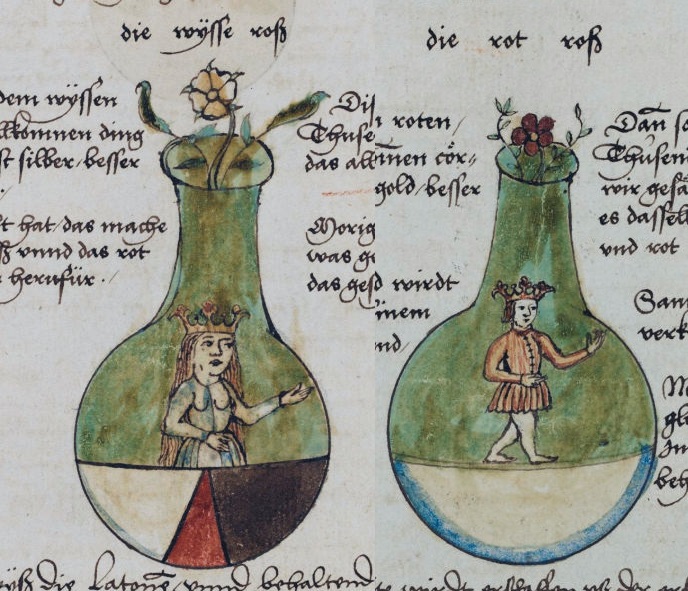 die wÿsse roß
dem wÿssen
llkomnen ding
st silber besser
ft hat das mache
ß vnnd das rot
herufür
Dis
Thuse
das all
Morig
was g
das gesd
die rot roß
roten
inen cör
gold besser
wirdt
inem
nd
Dan̄ so
Thusent
wir gefä
es dassel
vnd rot
San
verk
gl
In
beh
die Latonē vnnd behaltend